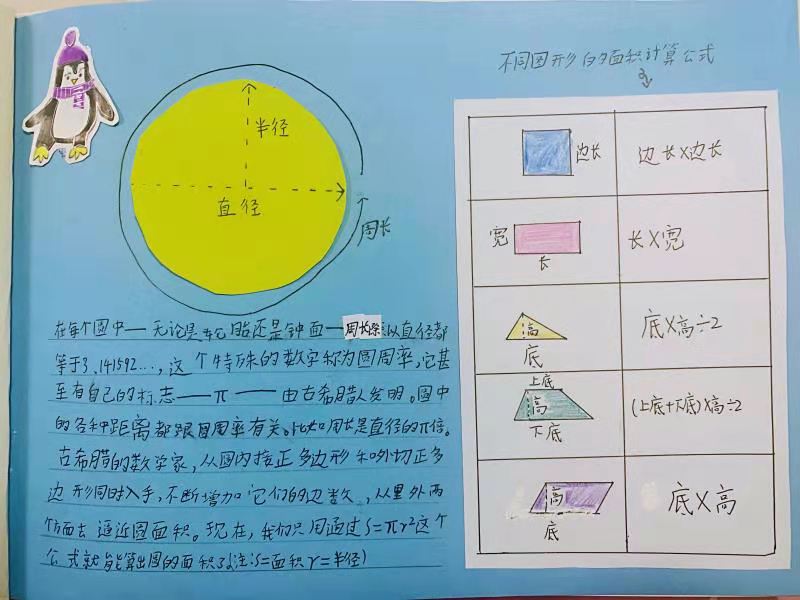 不同图形的面积计算公式
半径
直径
周长
边长
边长×边长
宽
长
长×宽
高
底
底×高÷2
上底
高
下底
(上底+下底)×高÷2
高
底
底×高
在每个圆中——无论是轮胎还是钟面——周长除以直径都
等于3.141592...,这个特殊的数字称为圆周率,它甚
至有自己的标志——π——由古希腊人发明。圆中
的各种距离都跟圆周率有关。比如周长是直径的π倍。
古希腊的数学家,从圆内接正多边形和外切正多
边形同时入手,不断增加它们的边数,从里外两
个方面去逼近圆面积。现在,我们只用通过S=πr²这个
公式就能算出圆的面积了(注:S=面积 r=半径)